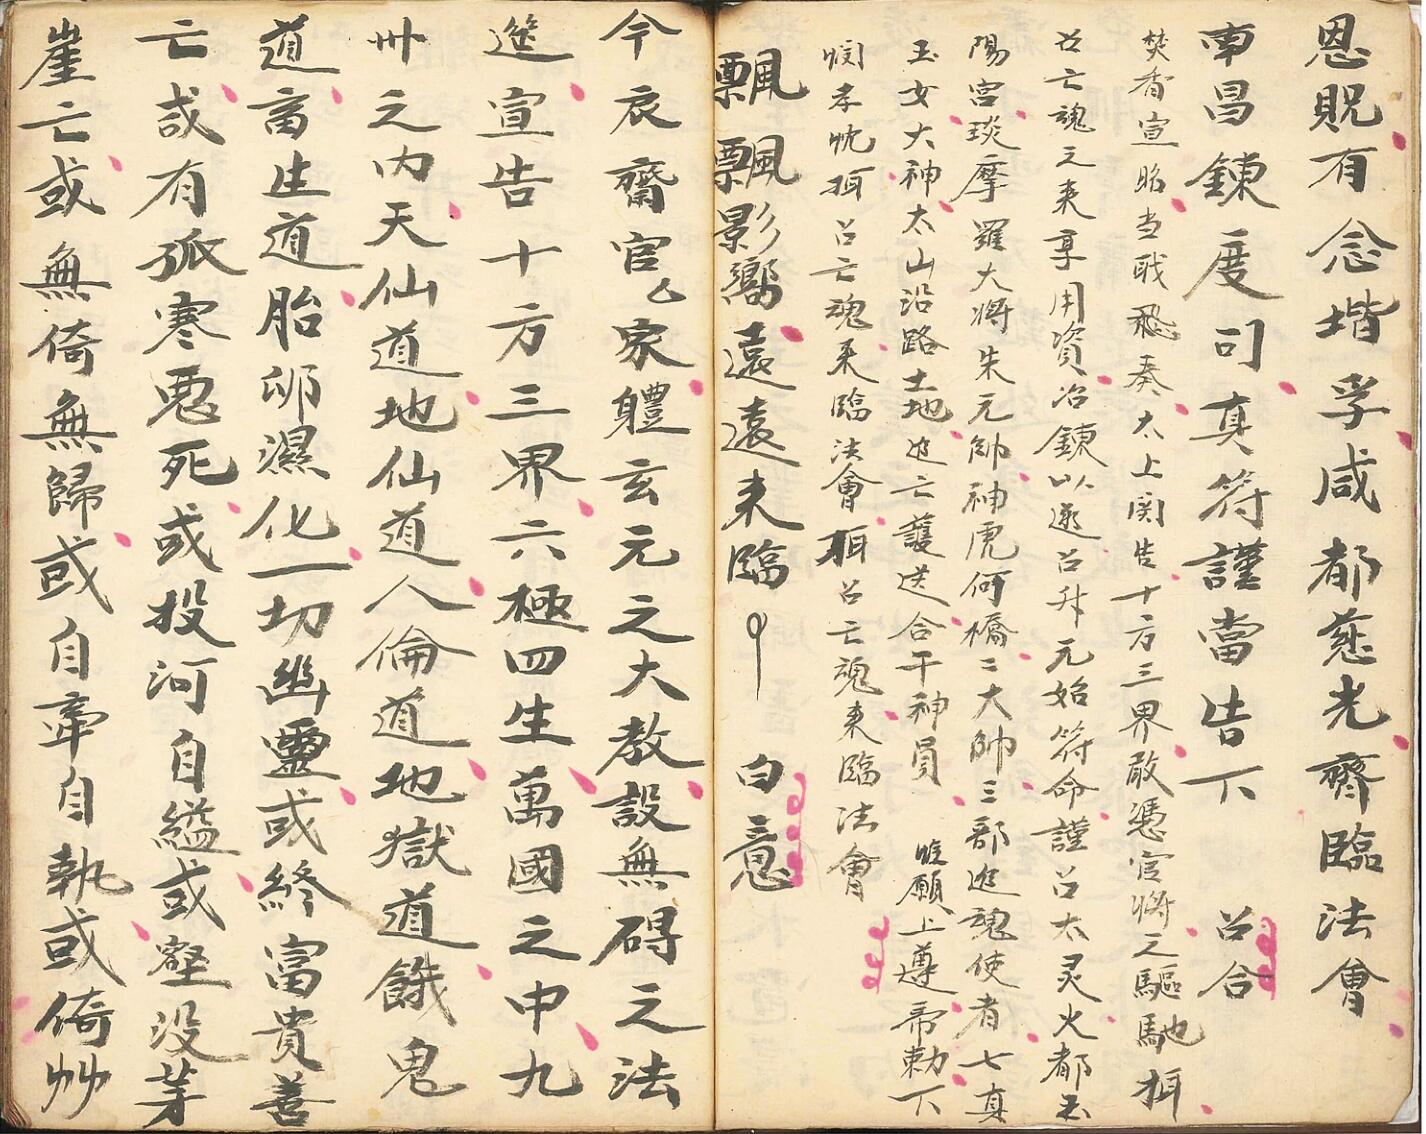 恩貺有念堦孚咸都慈光齊臨法會
南昌鍊度司真符謹當告下 召合
焚香宣昭当职飛奏太上関告十方三界敢憑官将之驅馳拜
召亡魂之来享用資冶鍊以遂召升元始符命謹召太灵火都玉
陽宫琰摩羅大将朱元帥神虎何橋二大帥三部追魂使者七真
玉女大神太山沿路土地追亡護送合干神員 惟願上尊帝敕下
憫孝忱拜召亡魂来臨法會拜召亡魂来臨法會
飄飄影嚮遠遠来臨 白意
今辰齋官厶家軆玄元之大教設無碍之法
筵宣告十方三界六極四生萬國之中九
卅之内天仙道地仙道人倫道地獄道餓鬼
道畜生道胎卵濕化一切幽靈或終富貴善
亡或有孤寒惡死或投河自縊或壑没芽
崖亡或無倚無歸或自牽自執或倚艸